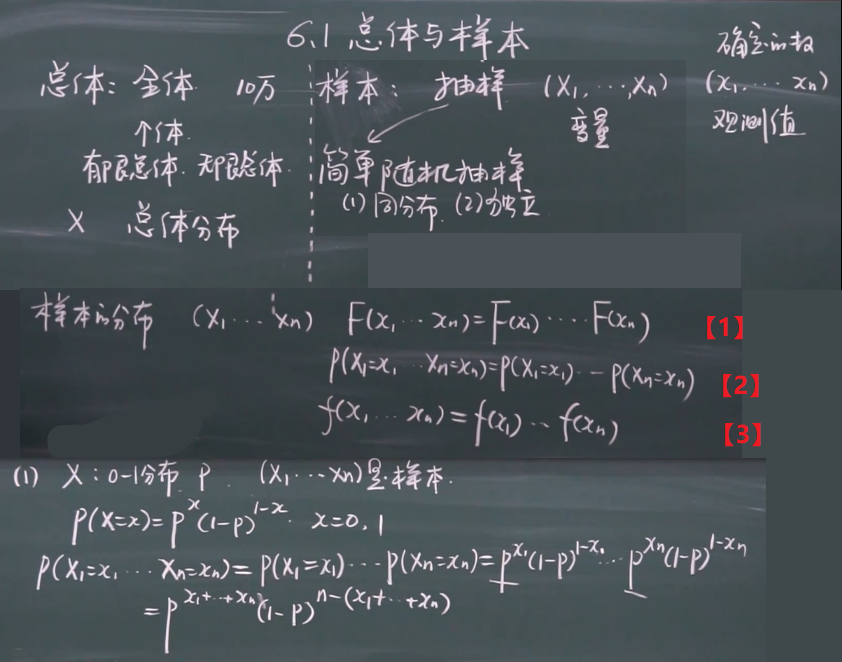 6.1 总体与样本
总体: 全体 10万
个体.
有限总体. 无限总体.
X 总体分布
样本: 抽样 (X₁, ···, Xₙ)
变量
确定的数
(x₁, ··· xₙ)
观测值
简单随机抽样
(1) 同分布. (2) 独立
样本的分布 (X₁ ··· Xₙ) F(x₁ ··· xₙ)=F(x₁) ···· F(xₙ) 【1】
P(X₁=x₁ ··· Xₙ=xₙ)=P(X₁=x₁) ·· P(Xₙ=xₙ) 【2】
f(x₁ ··· xₙ)=f(x₁) ·· f(xₙ) 【3】
(1) X: 0-1分布 P. (X₁ ··· Xₙ)是样本.
P(X=x)=p^x(1-p)^{1-x}. x=0, 1
P(X₁=x₁ ··· Xₙ=xₙ)=P(X₁=x₁) ··· P(Xₙ=xₙ)=p^{x₁}(1-p)^{1-x₁} ··· p^{xₙ}(1-p)^{1-xₙ}
=p^{x₁+··+xₙ}(1-p)^{n-(x₁+··+xₙ)}